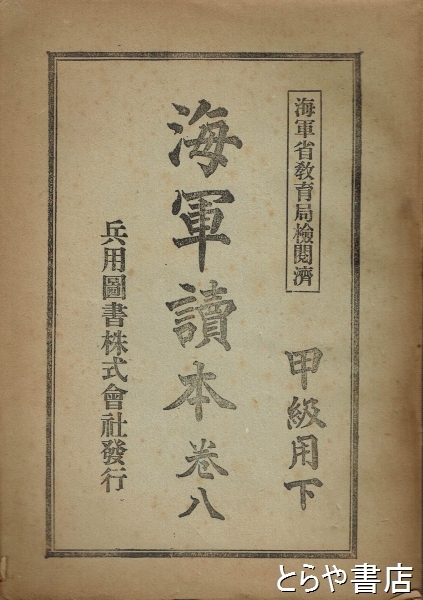 海軍省敎育局檢閱濟
甲級用下
海軍讀本卷八
兵用圖書株式會社發行
とらや書店